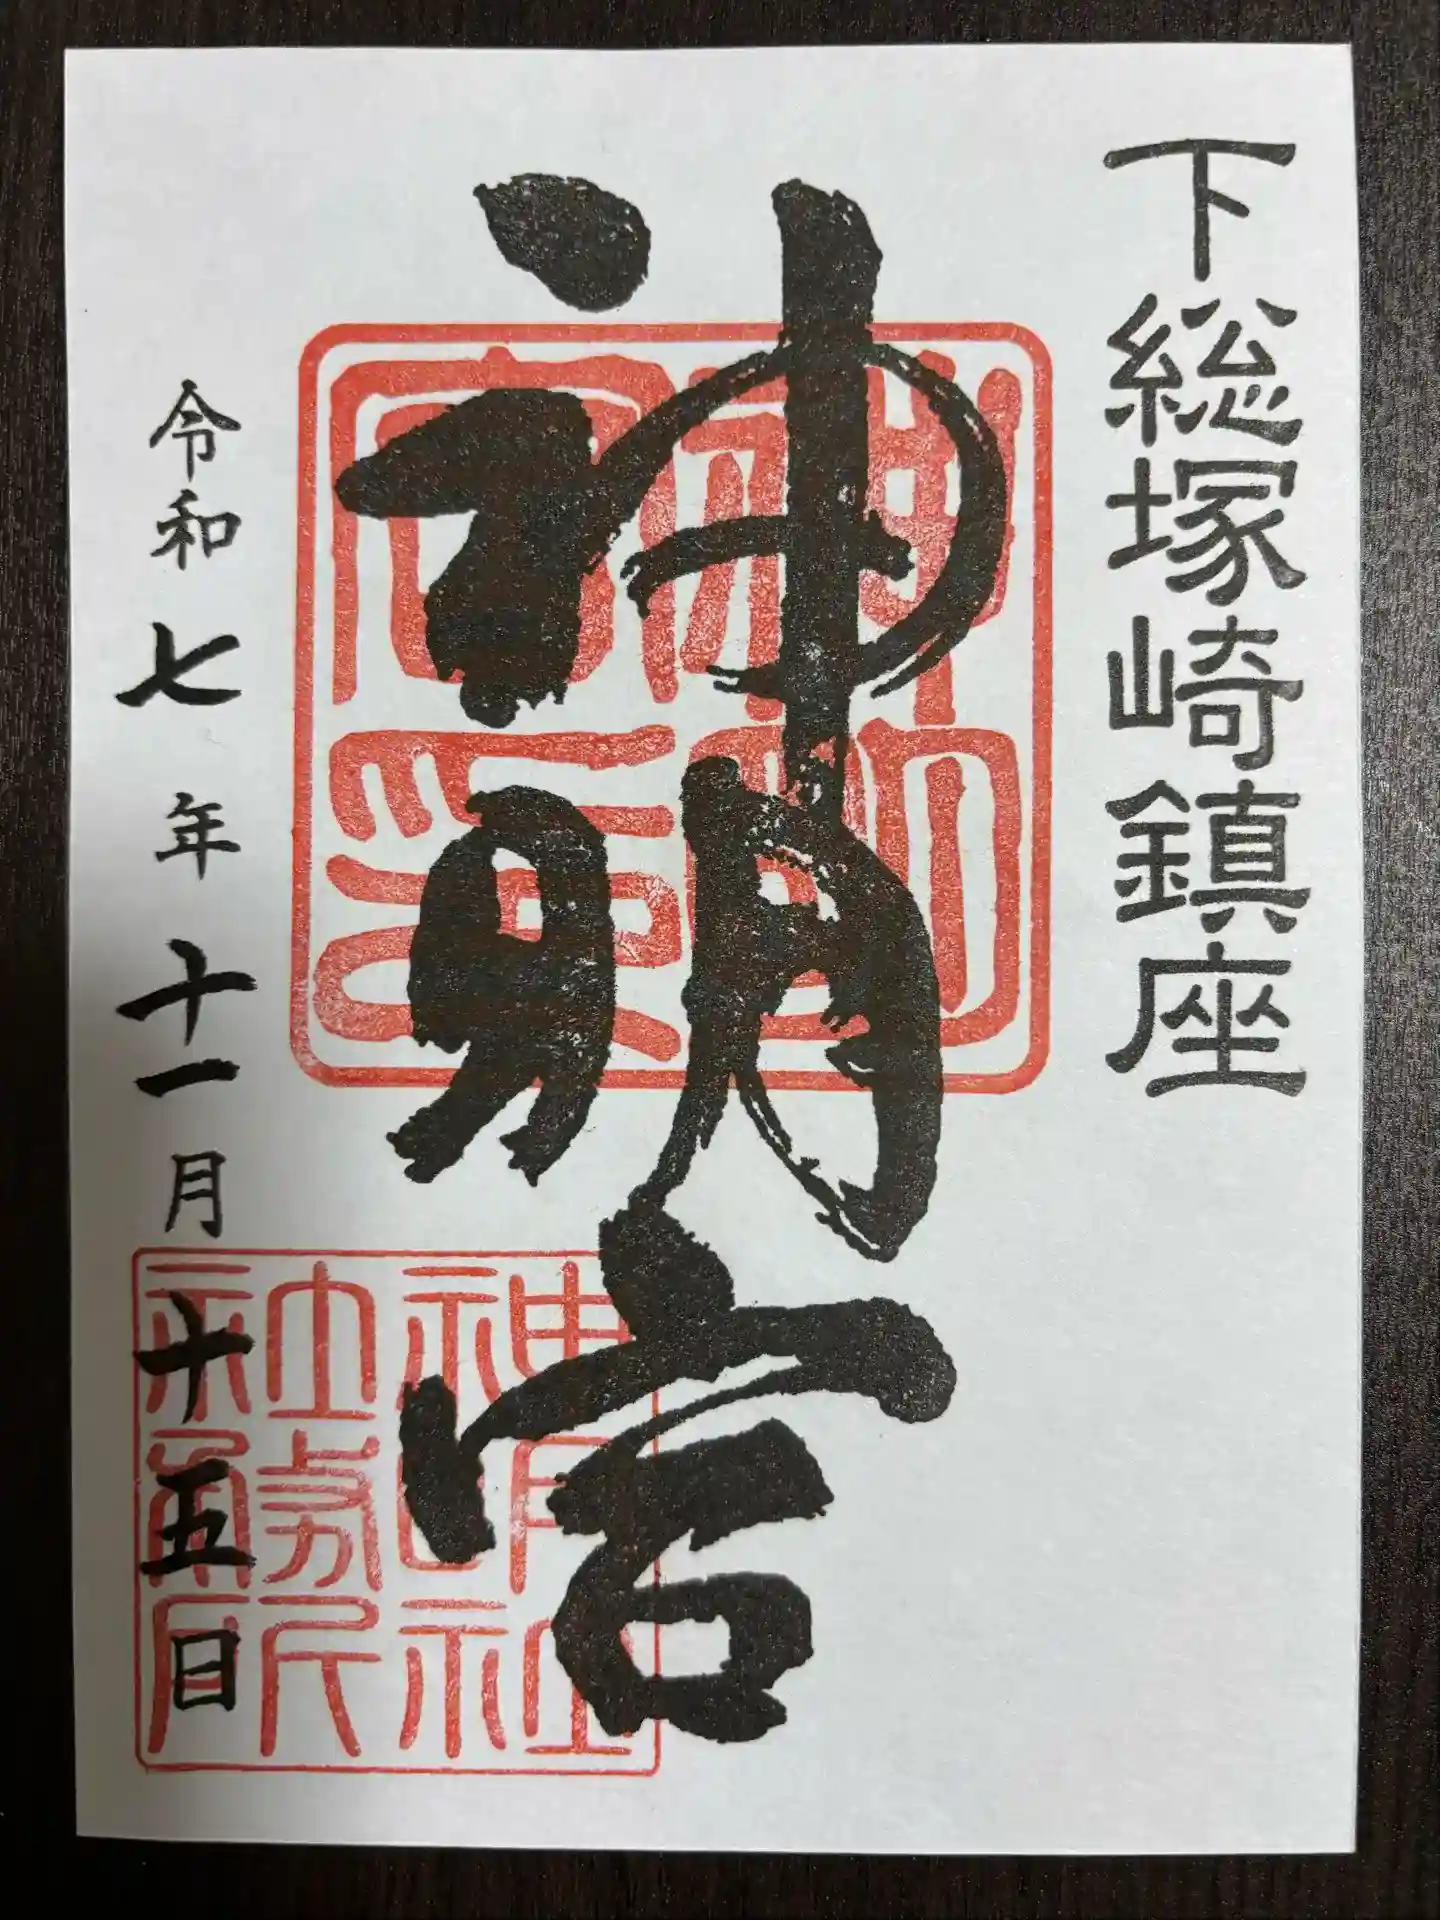 下総塚崎鎮座
神明宮
神明宮印
神明社
社務所
令和七年十一月十五日